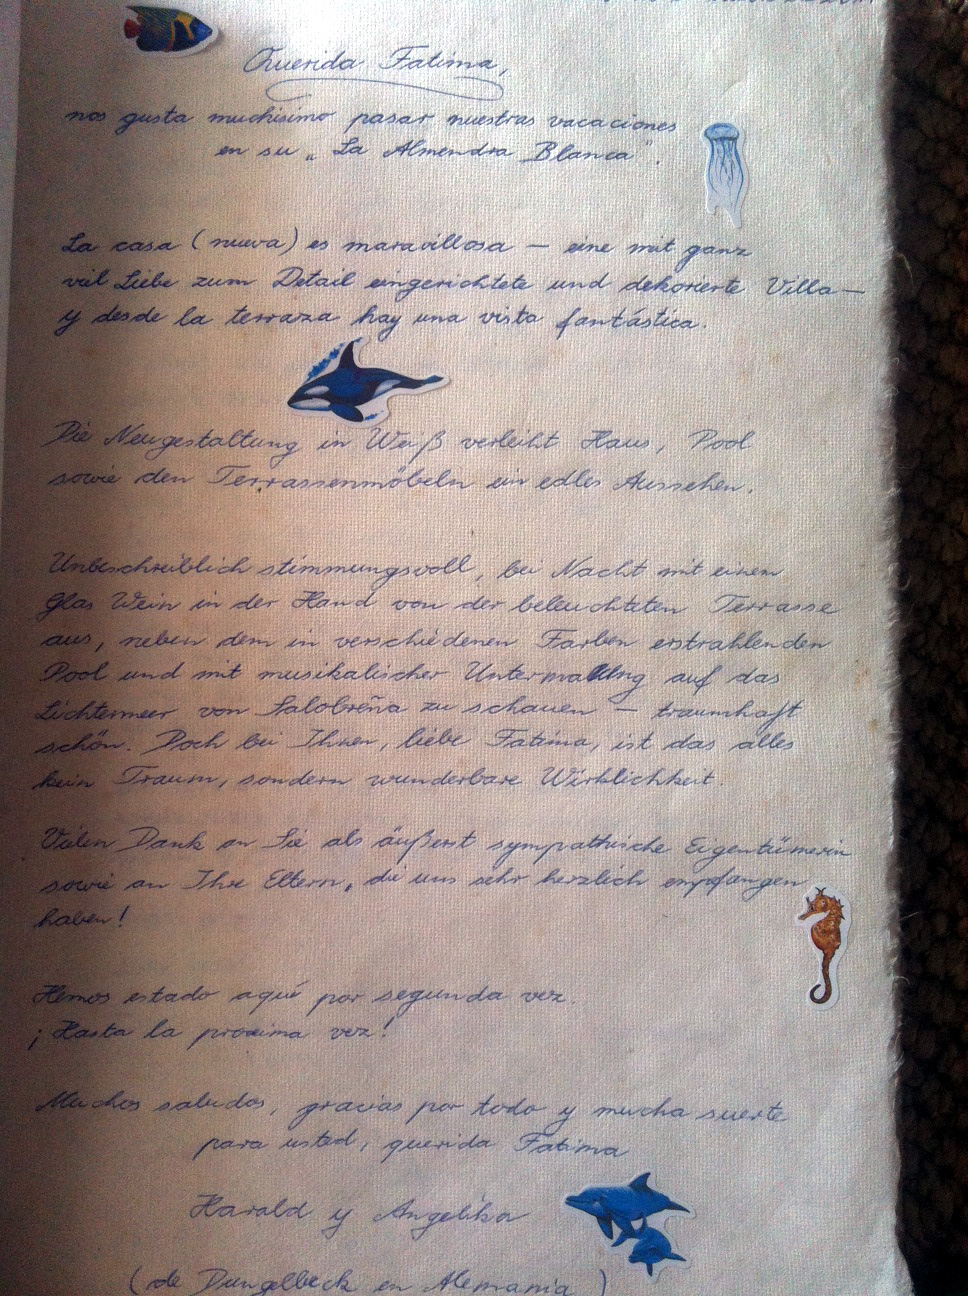 Querida Fatima,
nos gusta muchisimo pasar nuestras vacaciones
en su „La Almendra Blanca".
La casa (nueva) es maravillosa – eine mit ganz
viel Liebe zum Detail eingerichtete und dekorierte Villa –
y desde la terraza hay una vista fantástica.
Die Neugestaltung in Weiß verleiht Haus, Pool
sowie den Terrassenmöbeln ein edles Aussehen.
Unbeschreiblich stimmungsvoll, bei Nacht mit einem
Glas Wein in der Hand von der beleuchteten Terrasse
aus, neben dem in verschiedenen Farben erstrahlenden
Pool und mit musikalischer Untermalung auf das
Lichtermeer von Salobreña zu schauen – traumhaft
schön. Doch bei Ihnen, liebe Fatima, ist das alles
kein Traum, sondern wunderbare Wirklichkeit.
Vielen Dank an Sie als äußerst sympathische Eigentümerin
sowie an Ihre Eltern, die uns sehr herzlich empfangen
haben!
Hemos estado aquí por segunda vez.
¡Hasta la proxima vez!
Muchos saludos, gracias por todo y mucha suerte
para usted, querida Fatima
Harald y Angelika
(de Dungelbeck en Alemania)